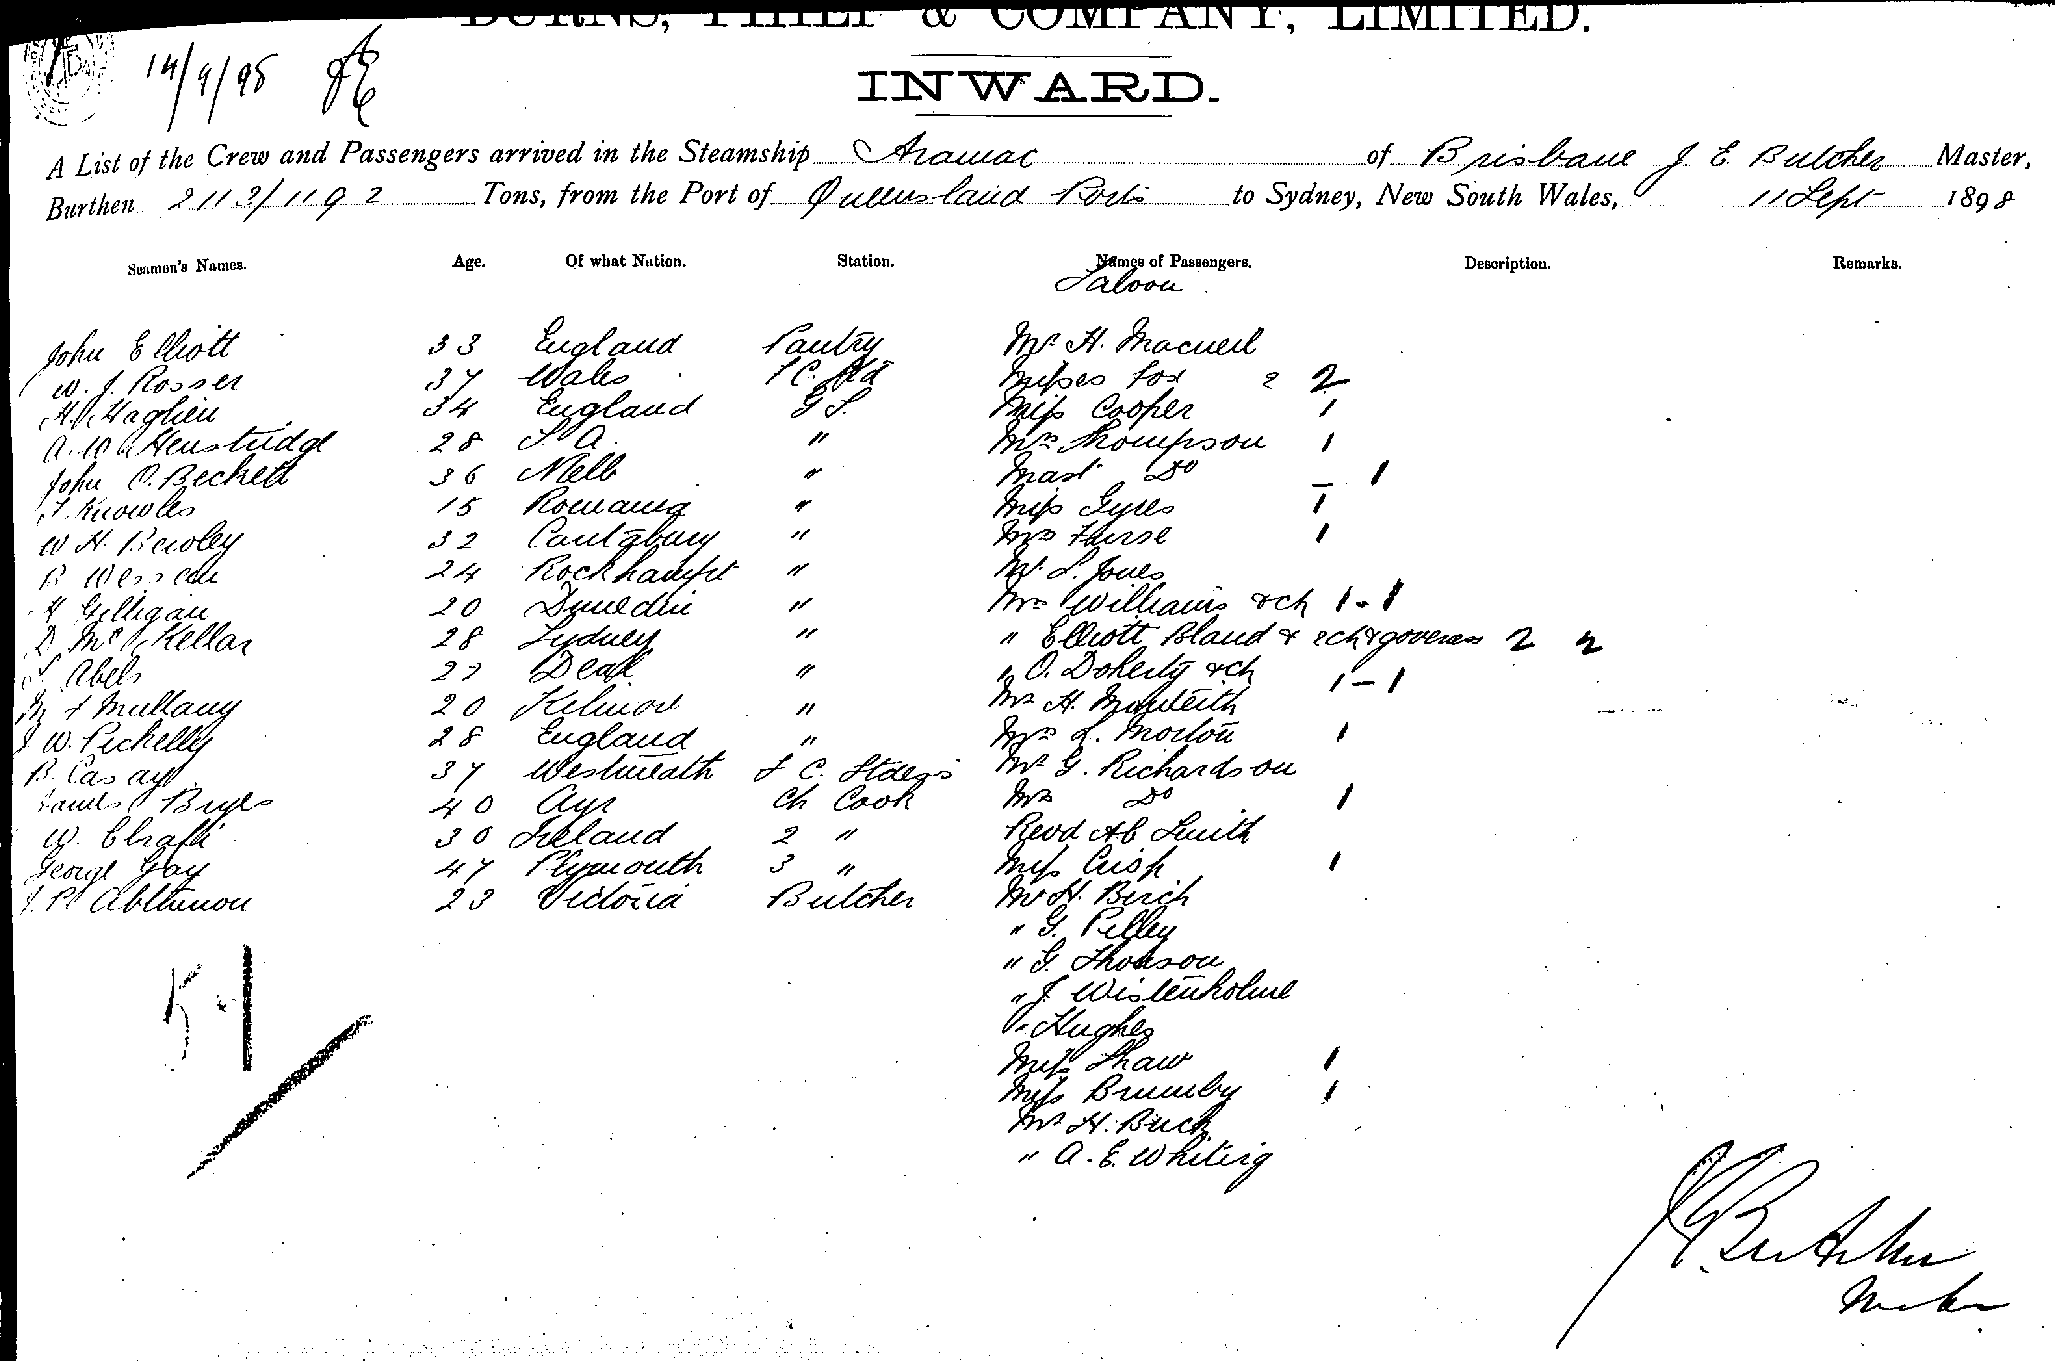 BURNS, PHILP & COMPANY, LIMITED.
14/9/98
INWARD.
A List of the Crew and Passengers arrived in the Steamship Aramac of Brisbane J E Butcher Master,
Burthen 2113/1192 Tons, from the Port of Queensland Ports to Sydney, New South Wales, 11 Sept 1898
Seamen's Names. Age. Of what Nation. Station. Names of Passengers. Description. Remarks.
Saloon
John Elliott 33 England Pantry Mr H. Macneil
W. J. Rosser 37 Wales Misses Fox 2 2
34 England G S. Miss Cooper 1
28 S A. " Mrs Thompson 1
John O. Beckett 36 Melb " Mast Do - 1
Knowles 15 Romania " Miss Gyles 1
W H. Bewley 32 " Mrs Furse 1
24 Rockhampt " Mr S. Jones
Gilligan 20 Dunedin " Mrs Williams & ch 1 - 1
D McKellar 28 Sydney " " Elliott Bland & 2ch & governess 2 2
S. Abels 27 Deal " " O. Doherty & ch 1 - 1
Mullany 20 Kilmore " Mr H. Monteith
J W. Pickelly 28 England " Mrs L. Morton 1
B. Casay 37 Westmeath Mr G. Richardson
James 40 Ayr Ch Cook Mrs Do 1
W. 30 Ireland 2 " Revd AB Smith
George Gay 47 Plymouth 3 " Miss Crisp 1
23 Victoria Butcher Mr H. Birch
" G. Pilley
" G. Thomson
" J. Wistenholme
" Hughes
Miss Shaw 1
Miss Brumby 1
Mr H. Buck
" A. E. Whiting
5 - 1
J E Butcher
Master